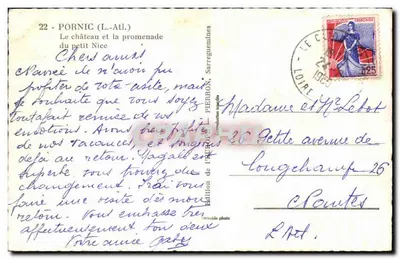 22 - PORNIC (L.-Atl.)
Le château et la promenade
du petit Nice
Chers amis
Navrée de n'avoir pu
profiter de votre visite, mais
je souhaite que vous soyez
tout à fait remise de vos
émotions. Avons bien profité
de nos vacances, et songeons
déjà au retour. Magali est
superbe vous trouverez du
changement. J'irai vous
faire une visite dès mon
retour. Vous embrasse très
affectueusement tous deux
Votre amie
PIERRON, Sarreguemines
Madame et Mr Lebot
26 Petite avenue de
Longchamp 26
Nantes
L. Atl.
LOIRE
0,25